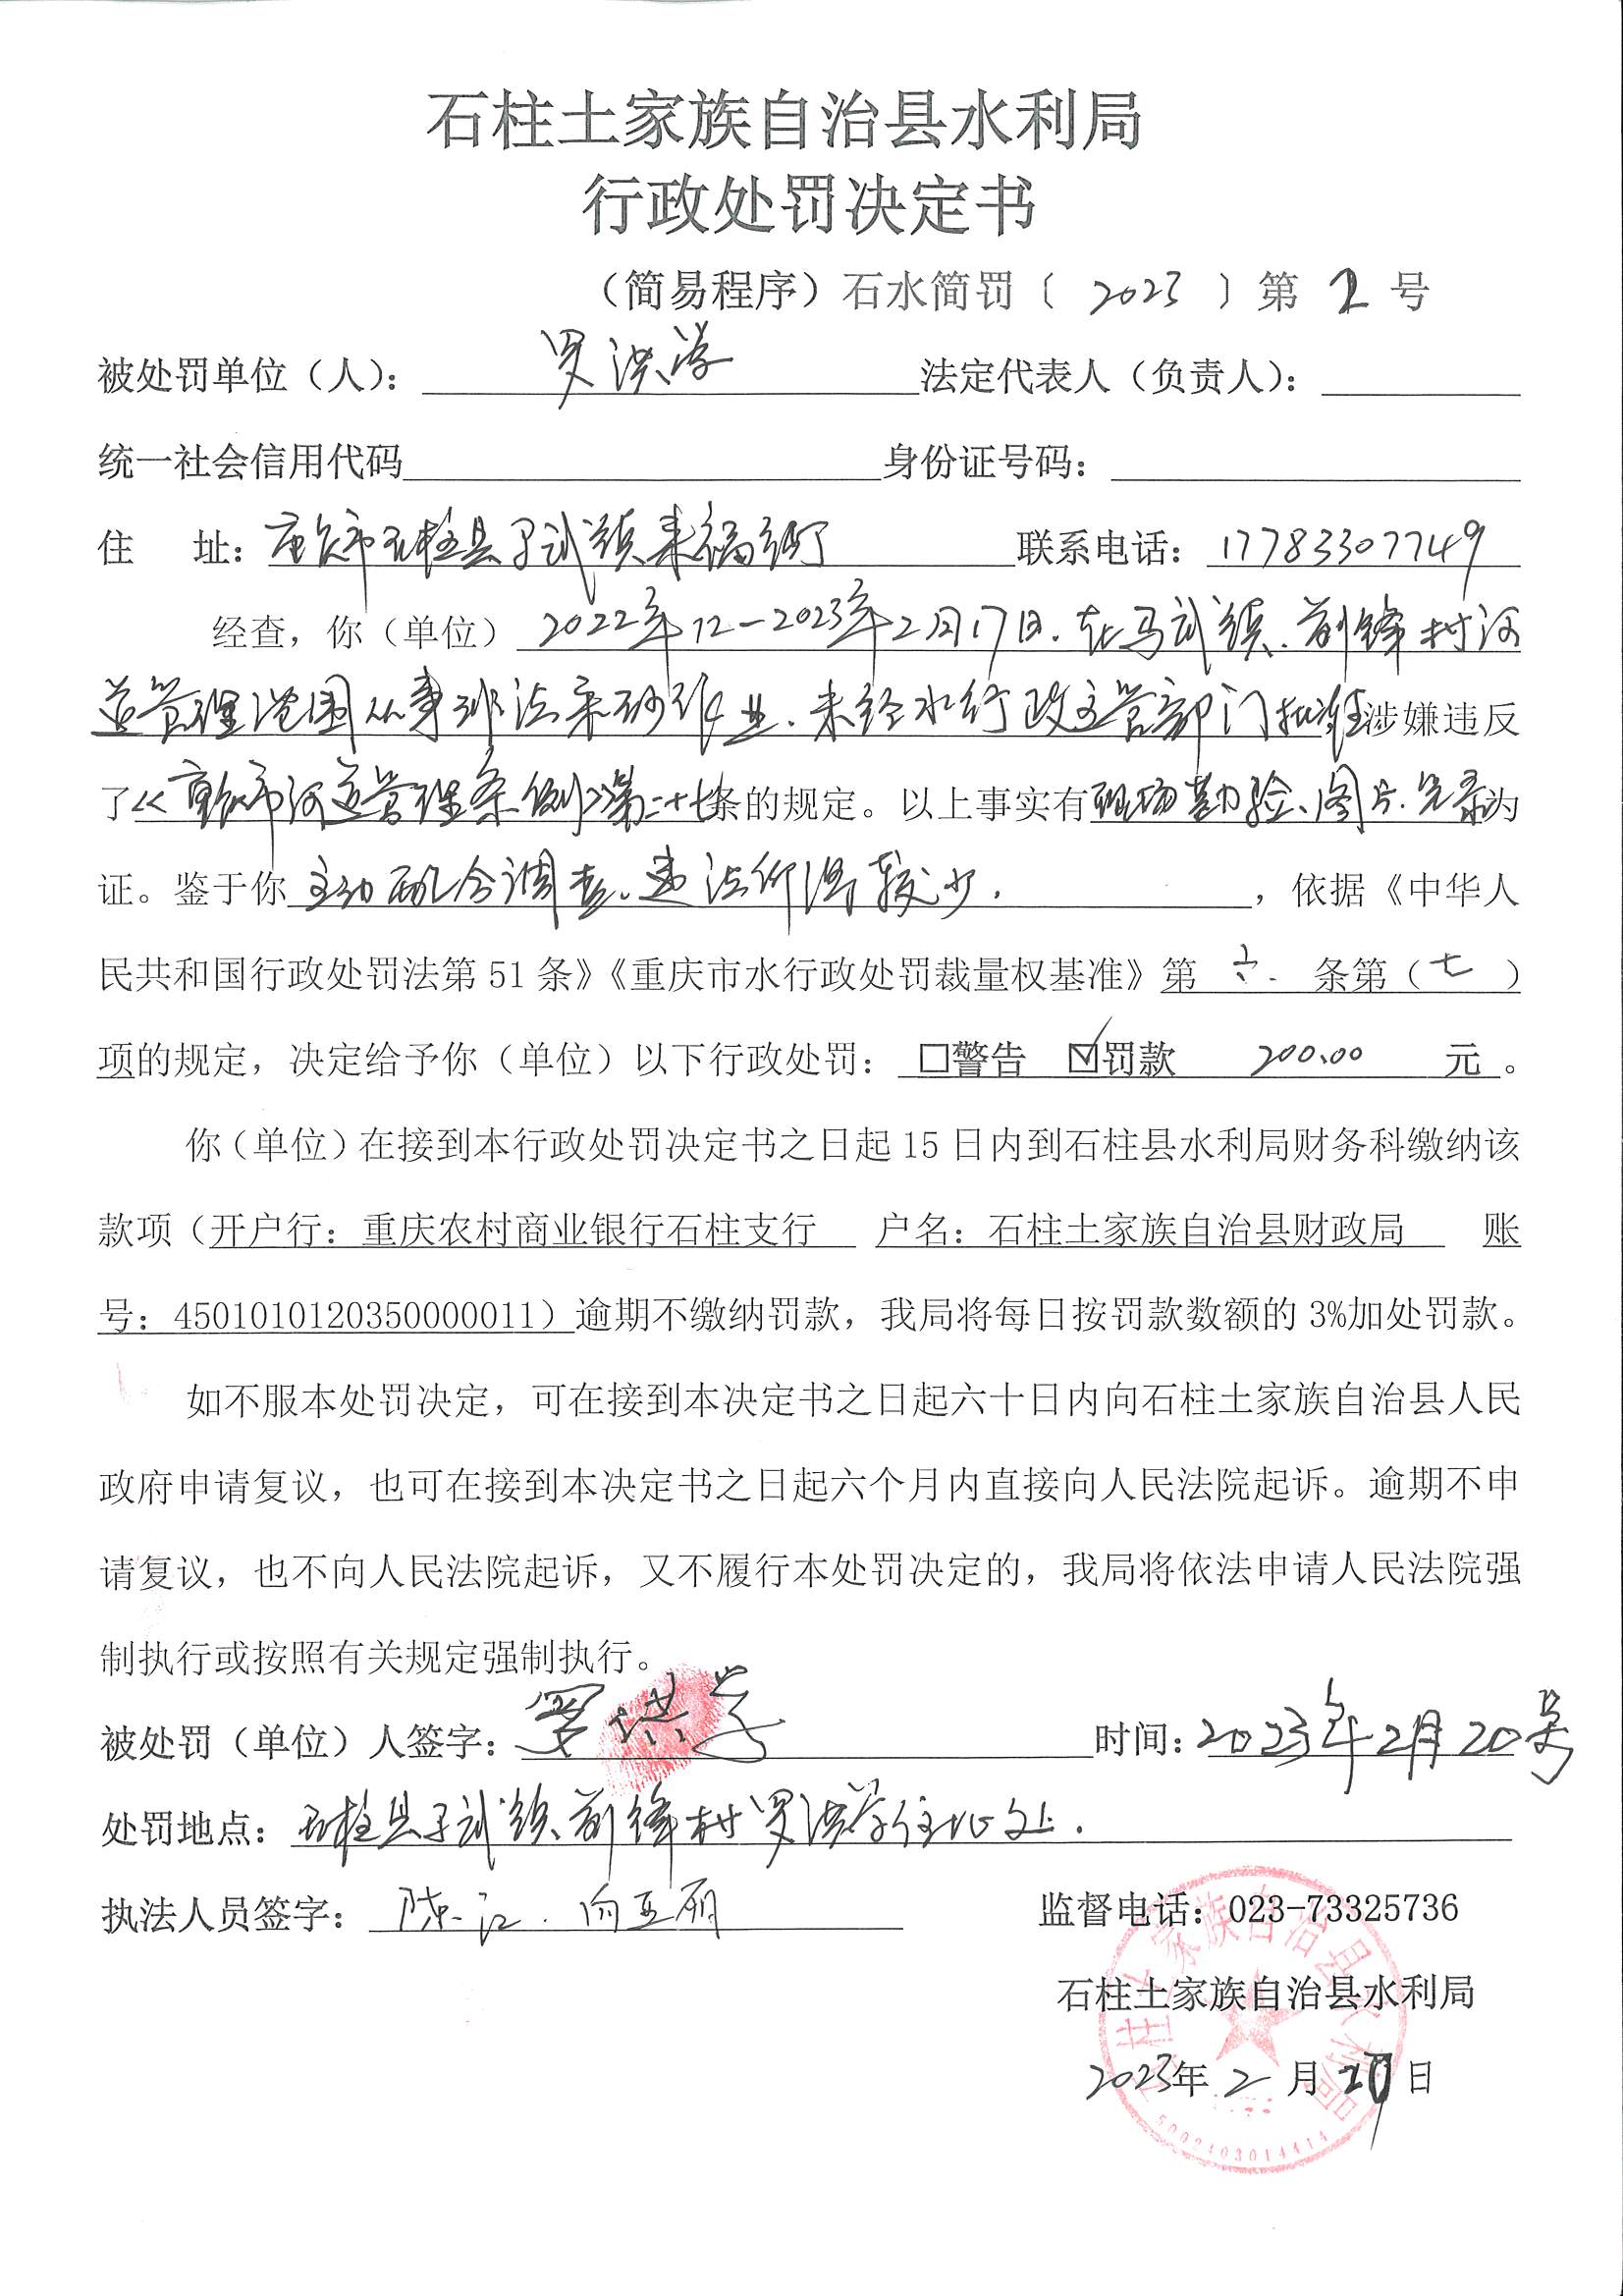 石柱土家族自治县水利局
行政处罚决定书
（简易程序）石水简罚〔 2023 〕第 2 号
被处罚单位（人）：罗洪学 法定代表人（负责人）：
统一社会信用代码 身份证号码：
住 址：重庆市石柱县马武镇来福街 联系电话：17783307749
经查，你（单位）2022年12-2023年2月17日.在马武镇.前锋村河
道管理范围从事非法采砂作业.未经水行政主管部门批准涉嫌违反
了《重庆市河道管理条例》第二十七条的规定。以上事实有现场勘验、图片.笔录为
证。鉴于你主动配合调查。违法所得较少. ，依据《中华人
民共和国行政处罚法第 51 条》《重庆市水行政处罚裁量权基准》第 六 条第（七）
项的规定，决定给予你（单位）以下行政处罚：□警告 ☑罚款 200.00 元。
你（单位）在接到本行政处罚决定书之日起 15 日内到石柱县水利局财务科缴纳该
款项（开户行：重庆农村商业银行石柱支行 户名：石柱土家族自治县财政局 账
号：4501010120350000011）逾期不缴纳罚款，我局将每日按罚款数额的 3%加处罚款。
如不服本处罚决定，可在接到本决定书之日起六十日内向石柱土家族自治县人民
政府申请复议，也可在接到本决定书之日起六个月内直接向人民法院起诉。逾期不申
请复议，也不向人民法院起诉，又不履行本处罚决定的，我局将依法申请人民法院强
制执行或按照有关规定强制执行。
被处罚（单位）人签字：罗洪学 时间：2023年2月20号
处罚地点：石柱县马武镇前锋村罗洪学住址处.
执法人员签字：陈江.向亚丽 监督电话：023-73325736
石柱土家族自治县水利局
2023年 2 月 20日
石柱土家族自治县水利局
5002403014414